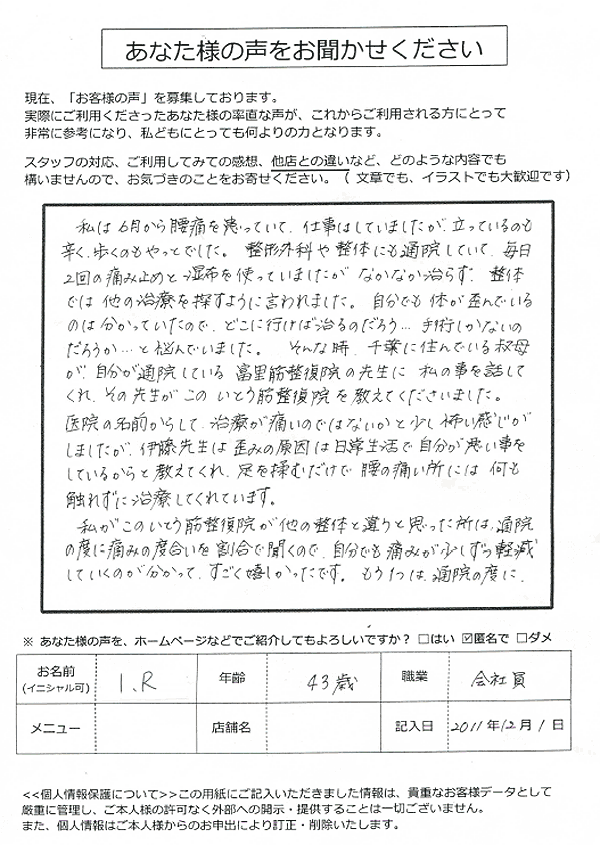 あなた様の声をお聞かせください
現在、「お客様の声」を募集しております。
実際にご利用くださったあなた様の率直な声が、これからご利用される方にとって
非常に参考になり、私どもにとっても何よりの力となります。
スタッフの対応、ご利用してみての感想、他店との違いなど、どのような内容でも
構いませんので、お気づきのことをお寄せください。（ 文章でも、イラストでも大歓迎です）
私は6月から腰痛を患っていて、仕事はしていましたが、立っているのも
辛く、歩くのもやっとでした。 整形外科や整体にも通院していて、毎日
2回の痛み止めと湿布を使っていましたが なかなか治らず、整体
では他の治療を探すように言われました。 自分でも体が歪んでいる
のは分かっていたので、どこに行けば治るのだろう… 手術しかないの
だろうか…と悩んでいました。 そんな時、千葉に住んでいる叔母
が、自分が通院している 富里筋整復院の先生に 私の事を話して
くれ、その先生が この いとう筋整復院を教えてくださいました。
医院の名前からして、治療が痛いのではないかと少し怖い感じが
しましたが、伊藤先生は歪みの原因は日常生活で自分が悪い事を
しているからと教えてくれ、足を揉むだけで 腰の痛い所には 何も
触れずに治療してくれています。
私がこのいとう筋整復院が他の整体と違うと思った所は、通院
の度に痛みの度合いを割合で聞くので、自分でも痛みが少しずつ軽減
していくのが分かって、すごく嬉しかったです。 もう1つは、通院の度に、
※ あなた様の声を、ホームページなどでご紹介してもよろしいですか？ □はい ☑匿名で □ダメ
お名前
(イニシャル可)
I.R
年齢
43歳
職業
会社員
メニュー
店舗名
記入日
2011年12月1日
<<個人情報保護について>>この用紙にご記入いただきました情報は、貴重なお客様データとして
厳重に管理し、ご本人様の許可なく外部への開示・提供することは一切ございません。
また、個人情報はご本人様からのお申出により訂正・削除いたします。